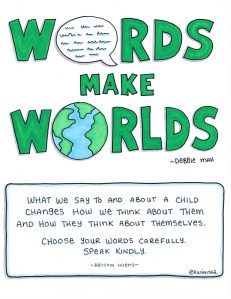 WORDS
MAKE
WORLDS
~DEBBIE MAH
WHAT WE SAY TO AND ABOUT A CHILD
CHANGES HOW WE THINK ABOUT THEM
AND HOW THEY THINK ABOUT THEMSELVES.
CHOOSE YOUR WORDS CAREFULLY.
SPEAK KINDLY.
~KRISTIN WIENS~